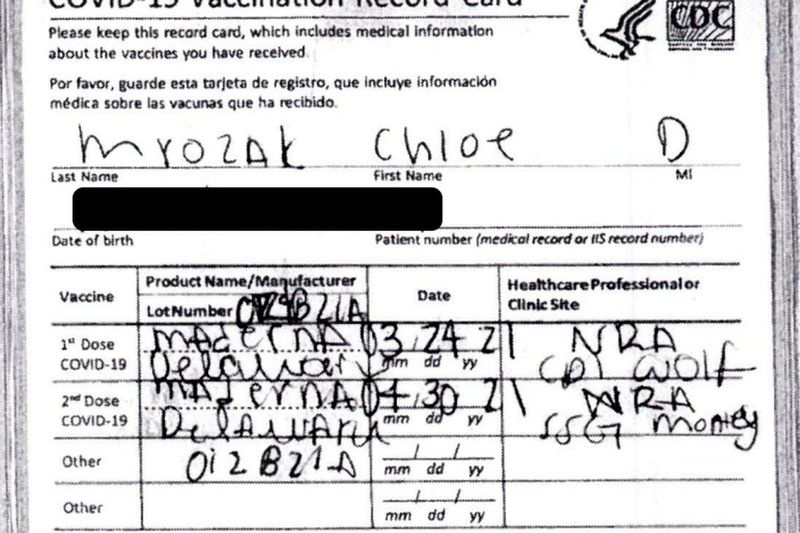 COVID-19 Vaccination Record Card
CDC
Please keep this record card, which includes medical information
about the vaccines you have received.
Por favor, guarde esta tarjeta de registro, que incluye información
médica sobre las vacunas que ha recibido.
Mrozak Chloe D
Last Name First Name MI
Date of birth Patient number (medical record or IIS record number)
Vaccine Product Name/Manufacturer Date Healthcare Professional or
Clinic Site
Lot Number
1st Dose MAdernA 03 24 21 NRA
COVID-19 mm dd yy CPT Wolf
2nd Dose MAdernA 04 30 21 NRA
COVID-19 mm dd yy SSG Money
Other 012B21A / /
mm dd yy
Other / /
mm dd yy